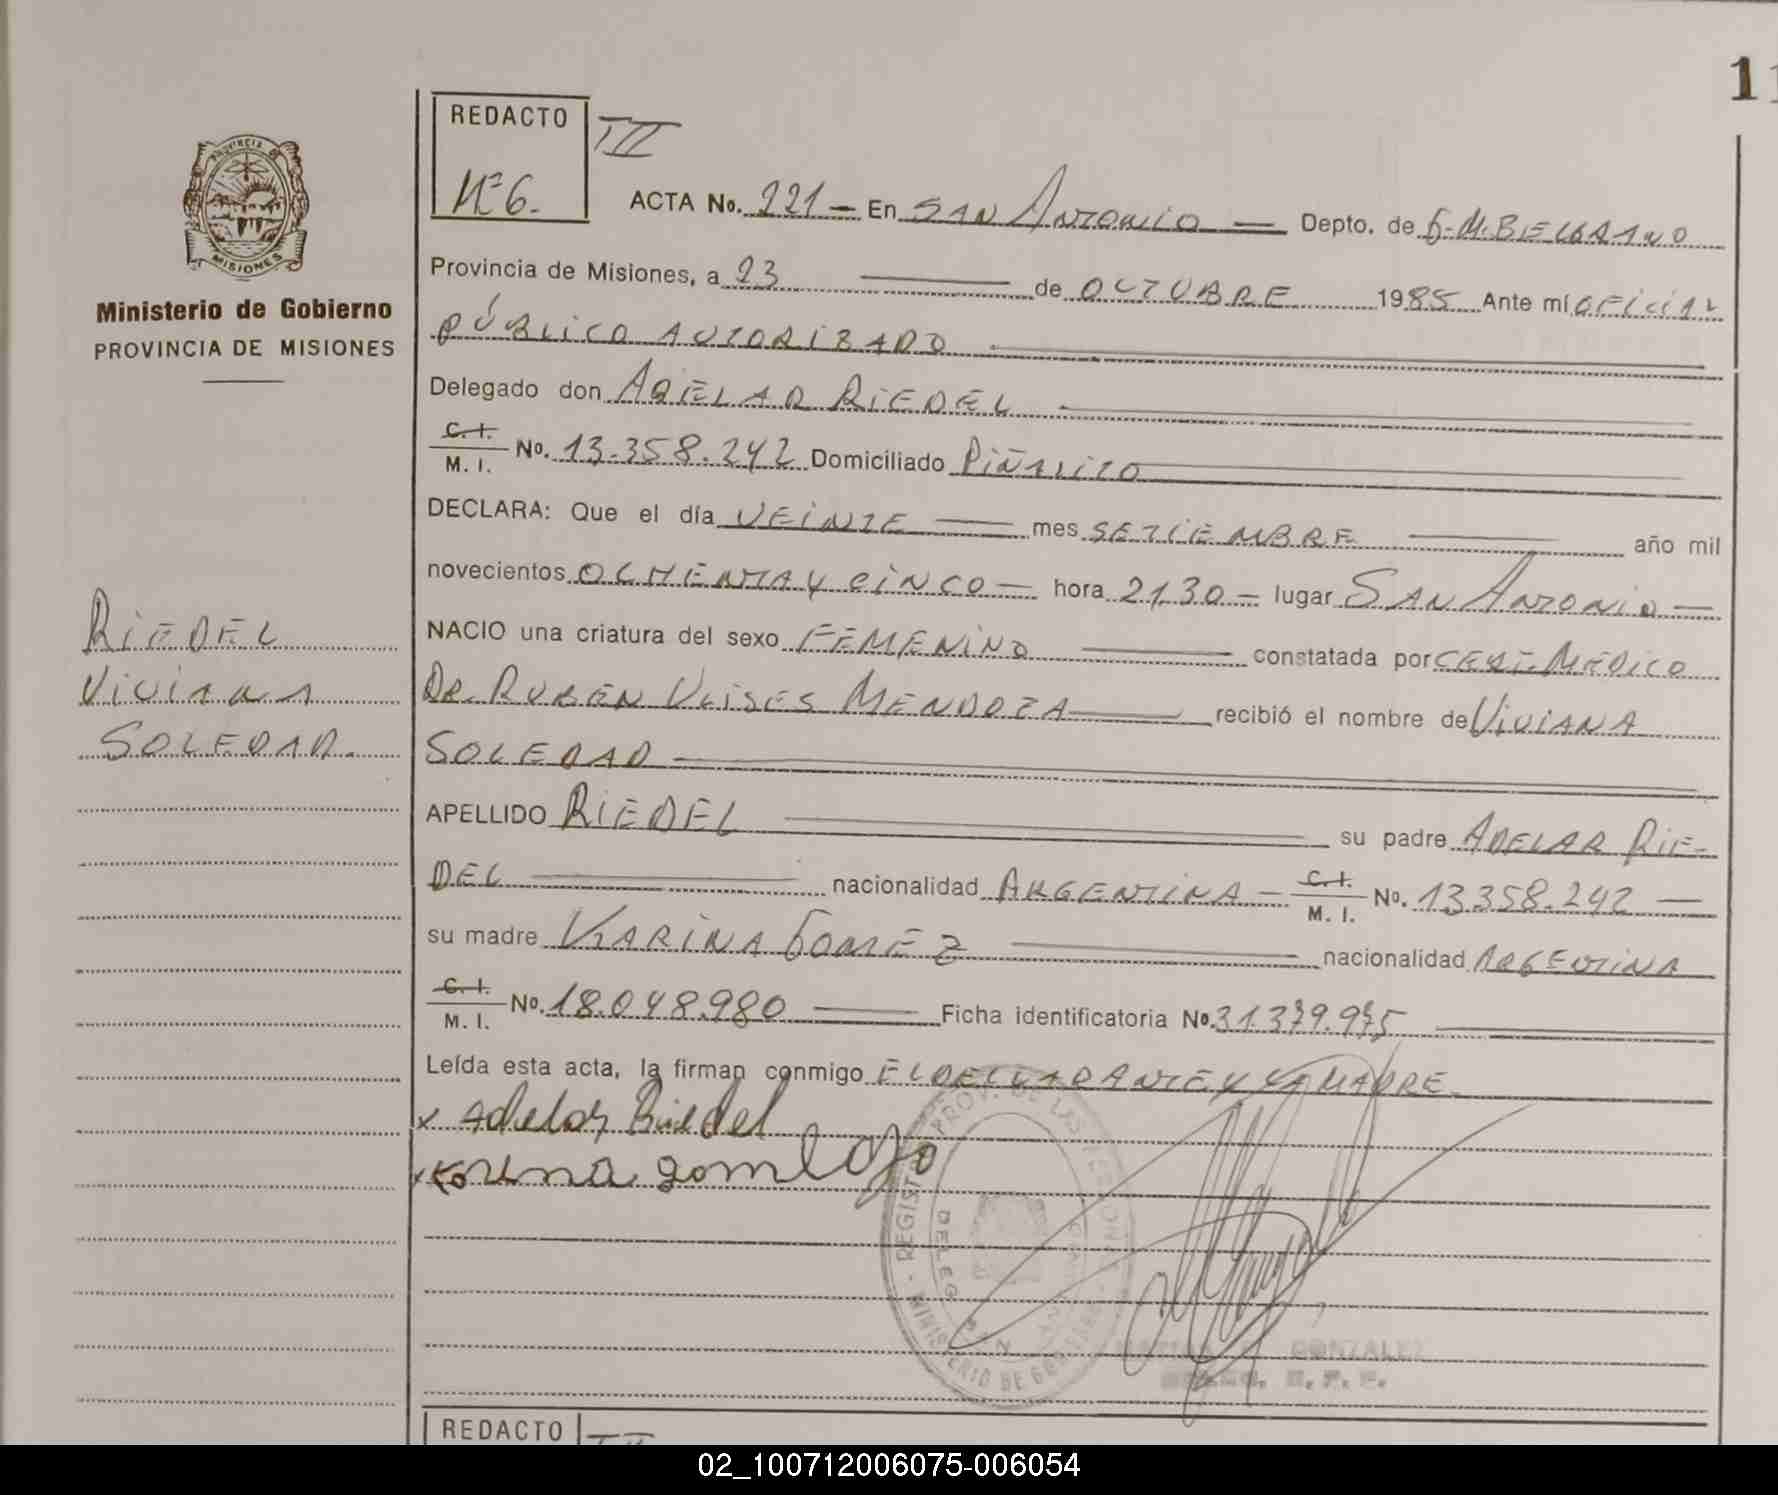 11
REDACTO
III
Nº6.
ACTA No. 221 — En SAN ANTONIO — Depto. de G. M. BELGRANO
PROVINCIA DE
MISIONES
Ministerio de Gobierno
PROVINCIA DE MISIONES
Provincia de Misiones, a 23 — de OCTUBRE 1985 Ante mí OFICIAL
PÚBLICO AUTORIZADO —
Delegado don ADELAR RIEDEL —
C. I.
M. I. No. 13.358.242 Domiciliado PIÑALITO
DECLARA: Que el día VEINTE — mes SETIEMBRE — año mil
novecientos OCHENTA Y CINCO — hora 21,30 — lugar SAN ANTONIO —
NACIO una criatura del sexo FEMENINO — constatada por CERT. MÉDICO
DR. RUBEN ULISES MENDOZA — recibió el nombre de VIVIANA
SOLEDAD —
RIEDEL
VIVIANA
SOLEDAD.
APELLIDO RIEDEL — su padre ADELAR RIE-
DEL — nacionalidad ARGENTINA — C. I.
M. I. No. 13.358.242 —
su madre KARINA GOMEZ — nacionalidad ARGENTINA
C. I.
M. I. No. 18.048.980 — Ficha identificatoria No. 31.379.975 —
Leída esta acta, la firman conmigo EL DECLARANTE Y LA MADRE.
x Adelar Riedel
x Korina gomez
REGISTRO PROV. DE LAS PERSONAS
MINISTERIO DE GOBIERNO
DELEG
GONZALEZ
REDACTO
02_100712006075-006054